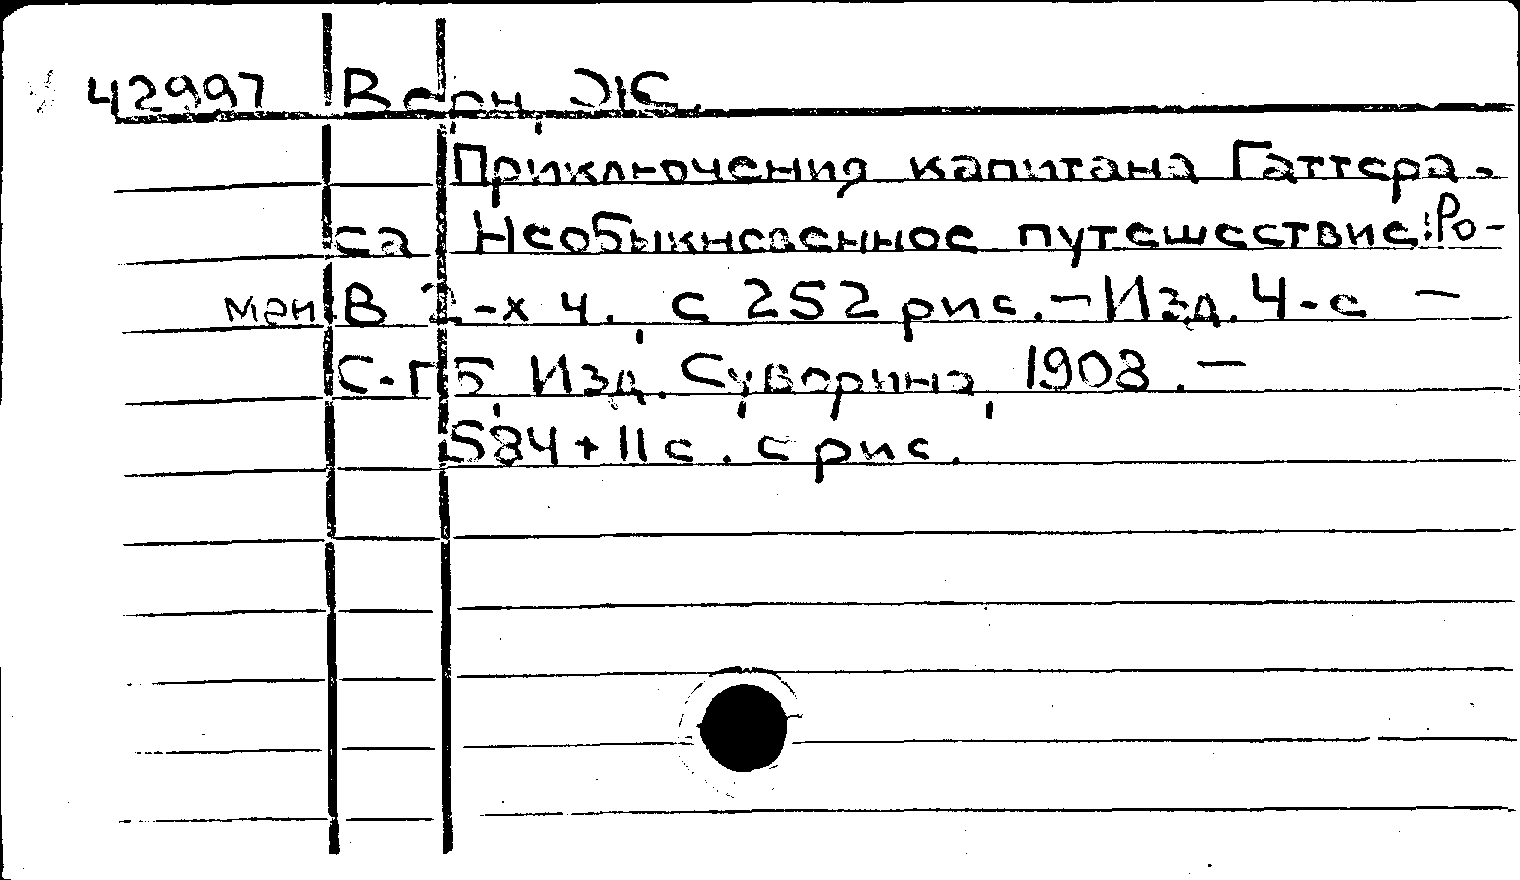 42997 Верн, Ж.
Приключения капитана Гаттера-
са Необыкновенное путешествие: Ро-
ман В 2-х ч., с 252 рис. — Изд. 4-е —
С-ПБ, Изд. Суворина, 1908. —
584 + II с. с рис.